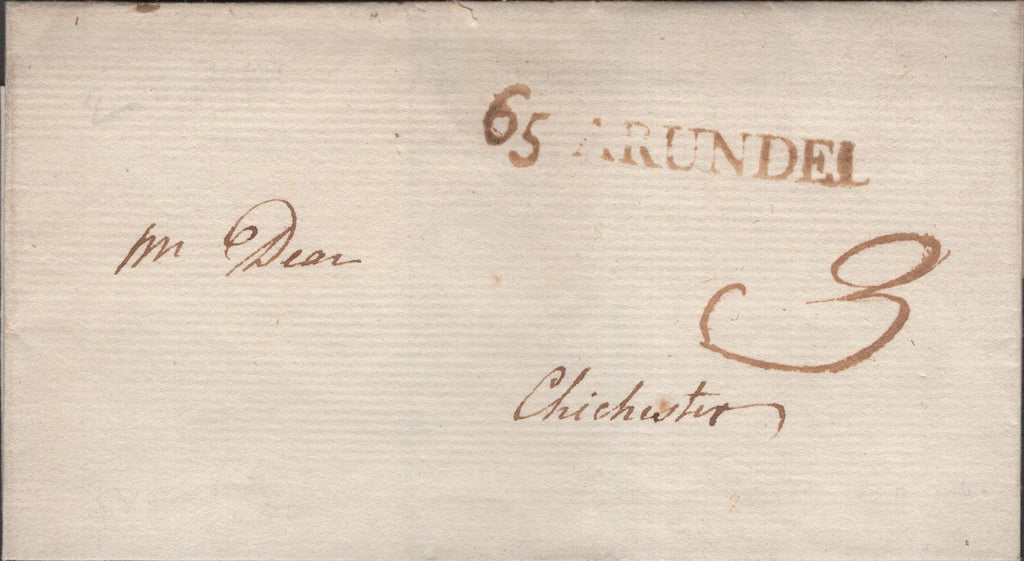 65 ARUNDEL
Mr Dear
3
Chichester